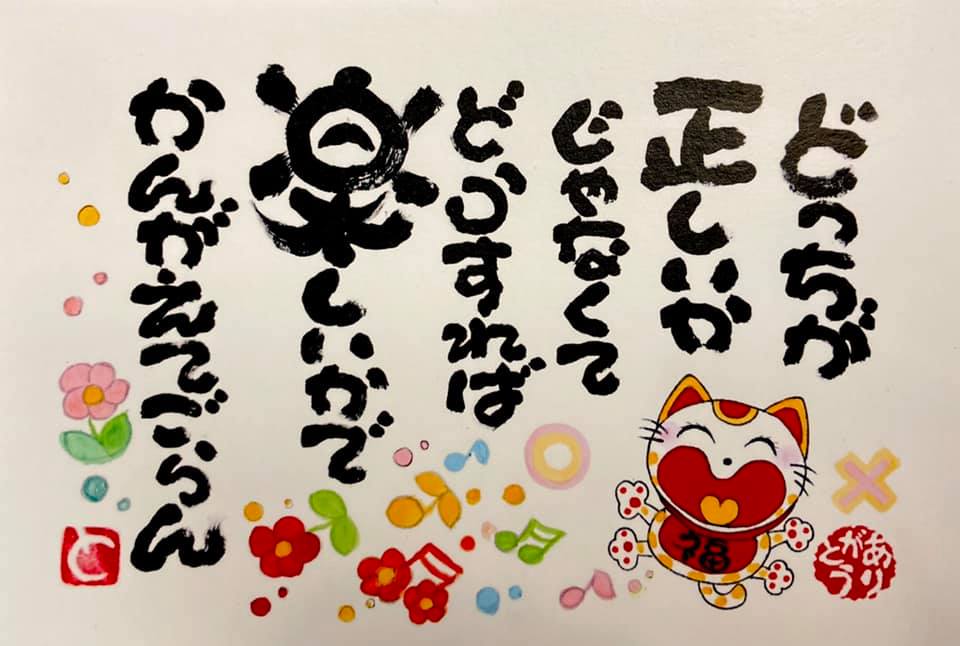 どっちが
正しいか
じゃなくて
どうすれば
楽しいかで
かんがえてごらん
福
ありがとう